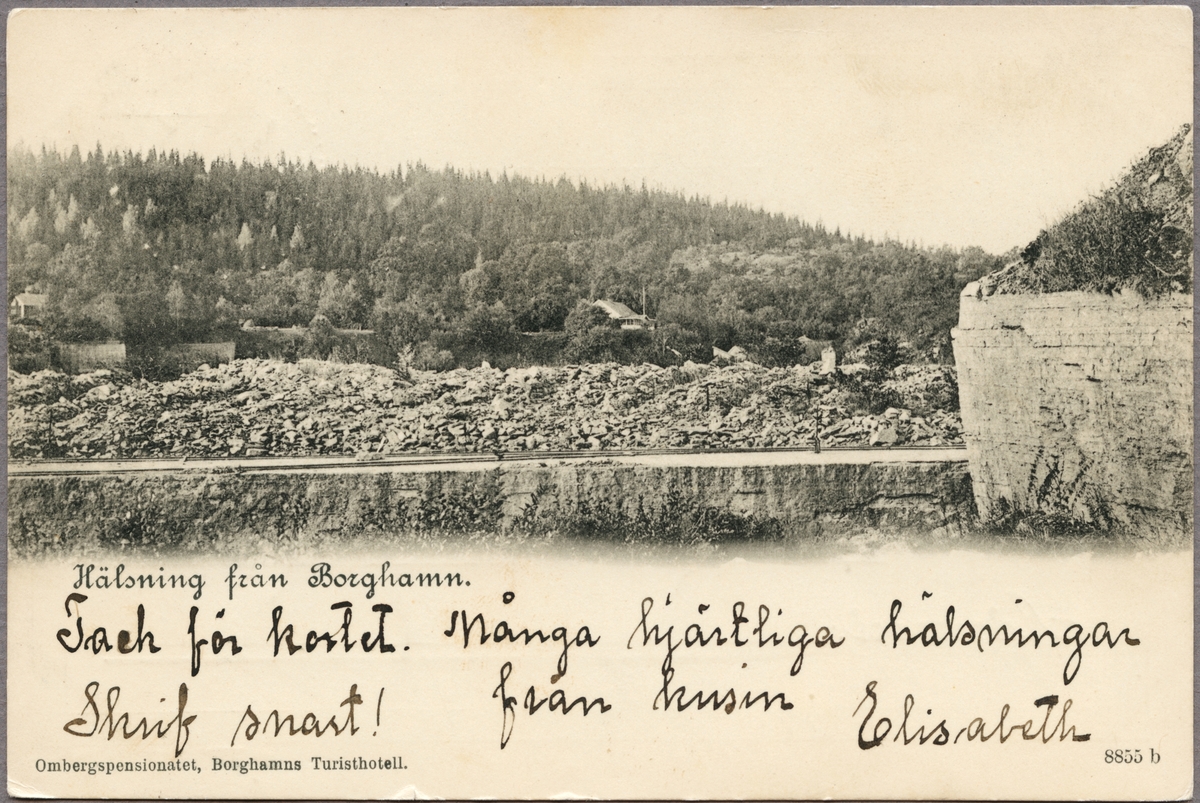 Hälsning från Borghamn.
Tack för kortet. Många hjärtliga hälsningar
Skrif snart! från kusin Elisabeth
Ombergspensionatet, Borghamns Turisthotell.
8855 b